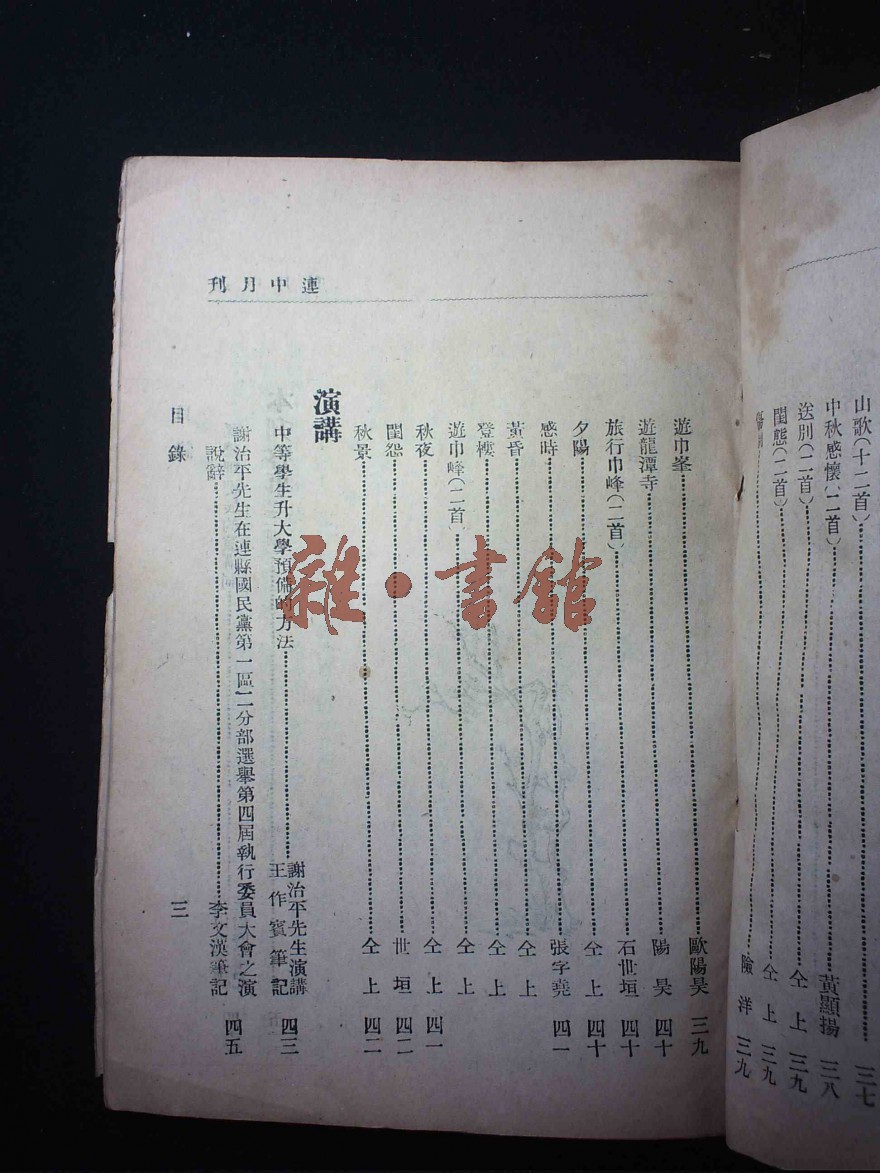 山歌(十二首)…… 三七
中秋感懷(二首)…… 黃顯揚 三八
送別(二首)…… 仝上 三九
閨態(二首)…… 仝上 三九
…… 險洋 三九
連中月刊
遊巾峯…… 歐陽昊 三九
遊龍潭寺…… 陽昊 四十
旅行巾峰(二首)…… 石世垣 四十
夕陽…… 仝上 四十
感時…… 張字堯 四一
黃昏…… 仝上
登樓…… 仝上
遊巾峰(二首)…… 仝上
秋夜…… 仝上 四一
閨怨…… 世垣 四二
秋景…… 仝上 四二
演講
中等學生升大學預備的方法…… 謝治平先生演講 王作賓筆記 四三
謝治平先生在連縣國民黨第一區二分部選舉第四屆執行委員大會之演
說辭…… 李文漢筆記 四五
目錄 三
雜·書館